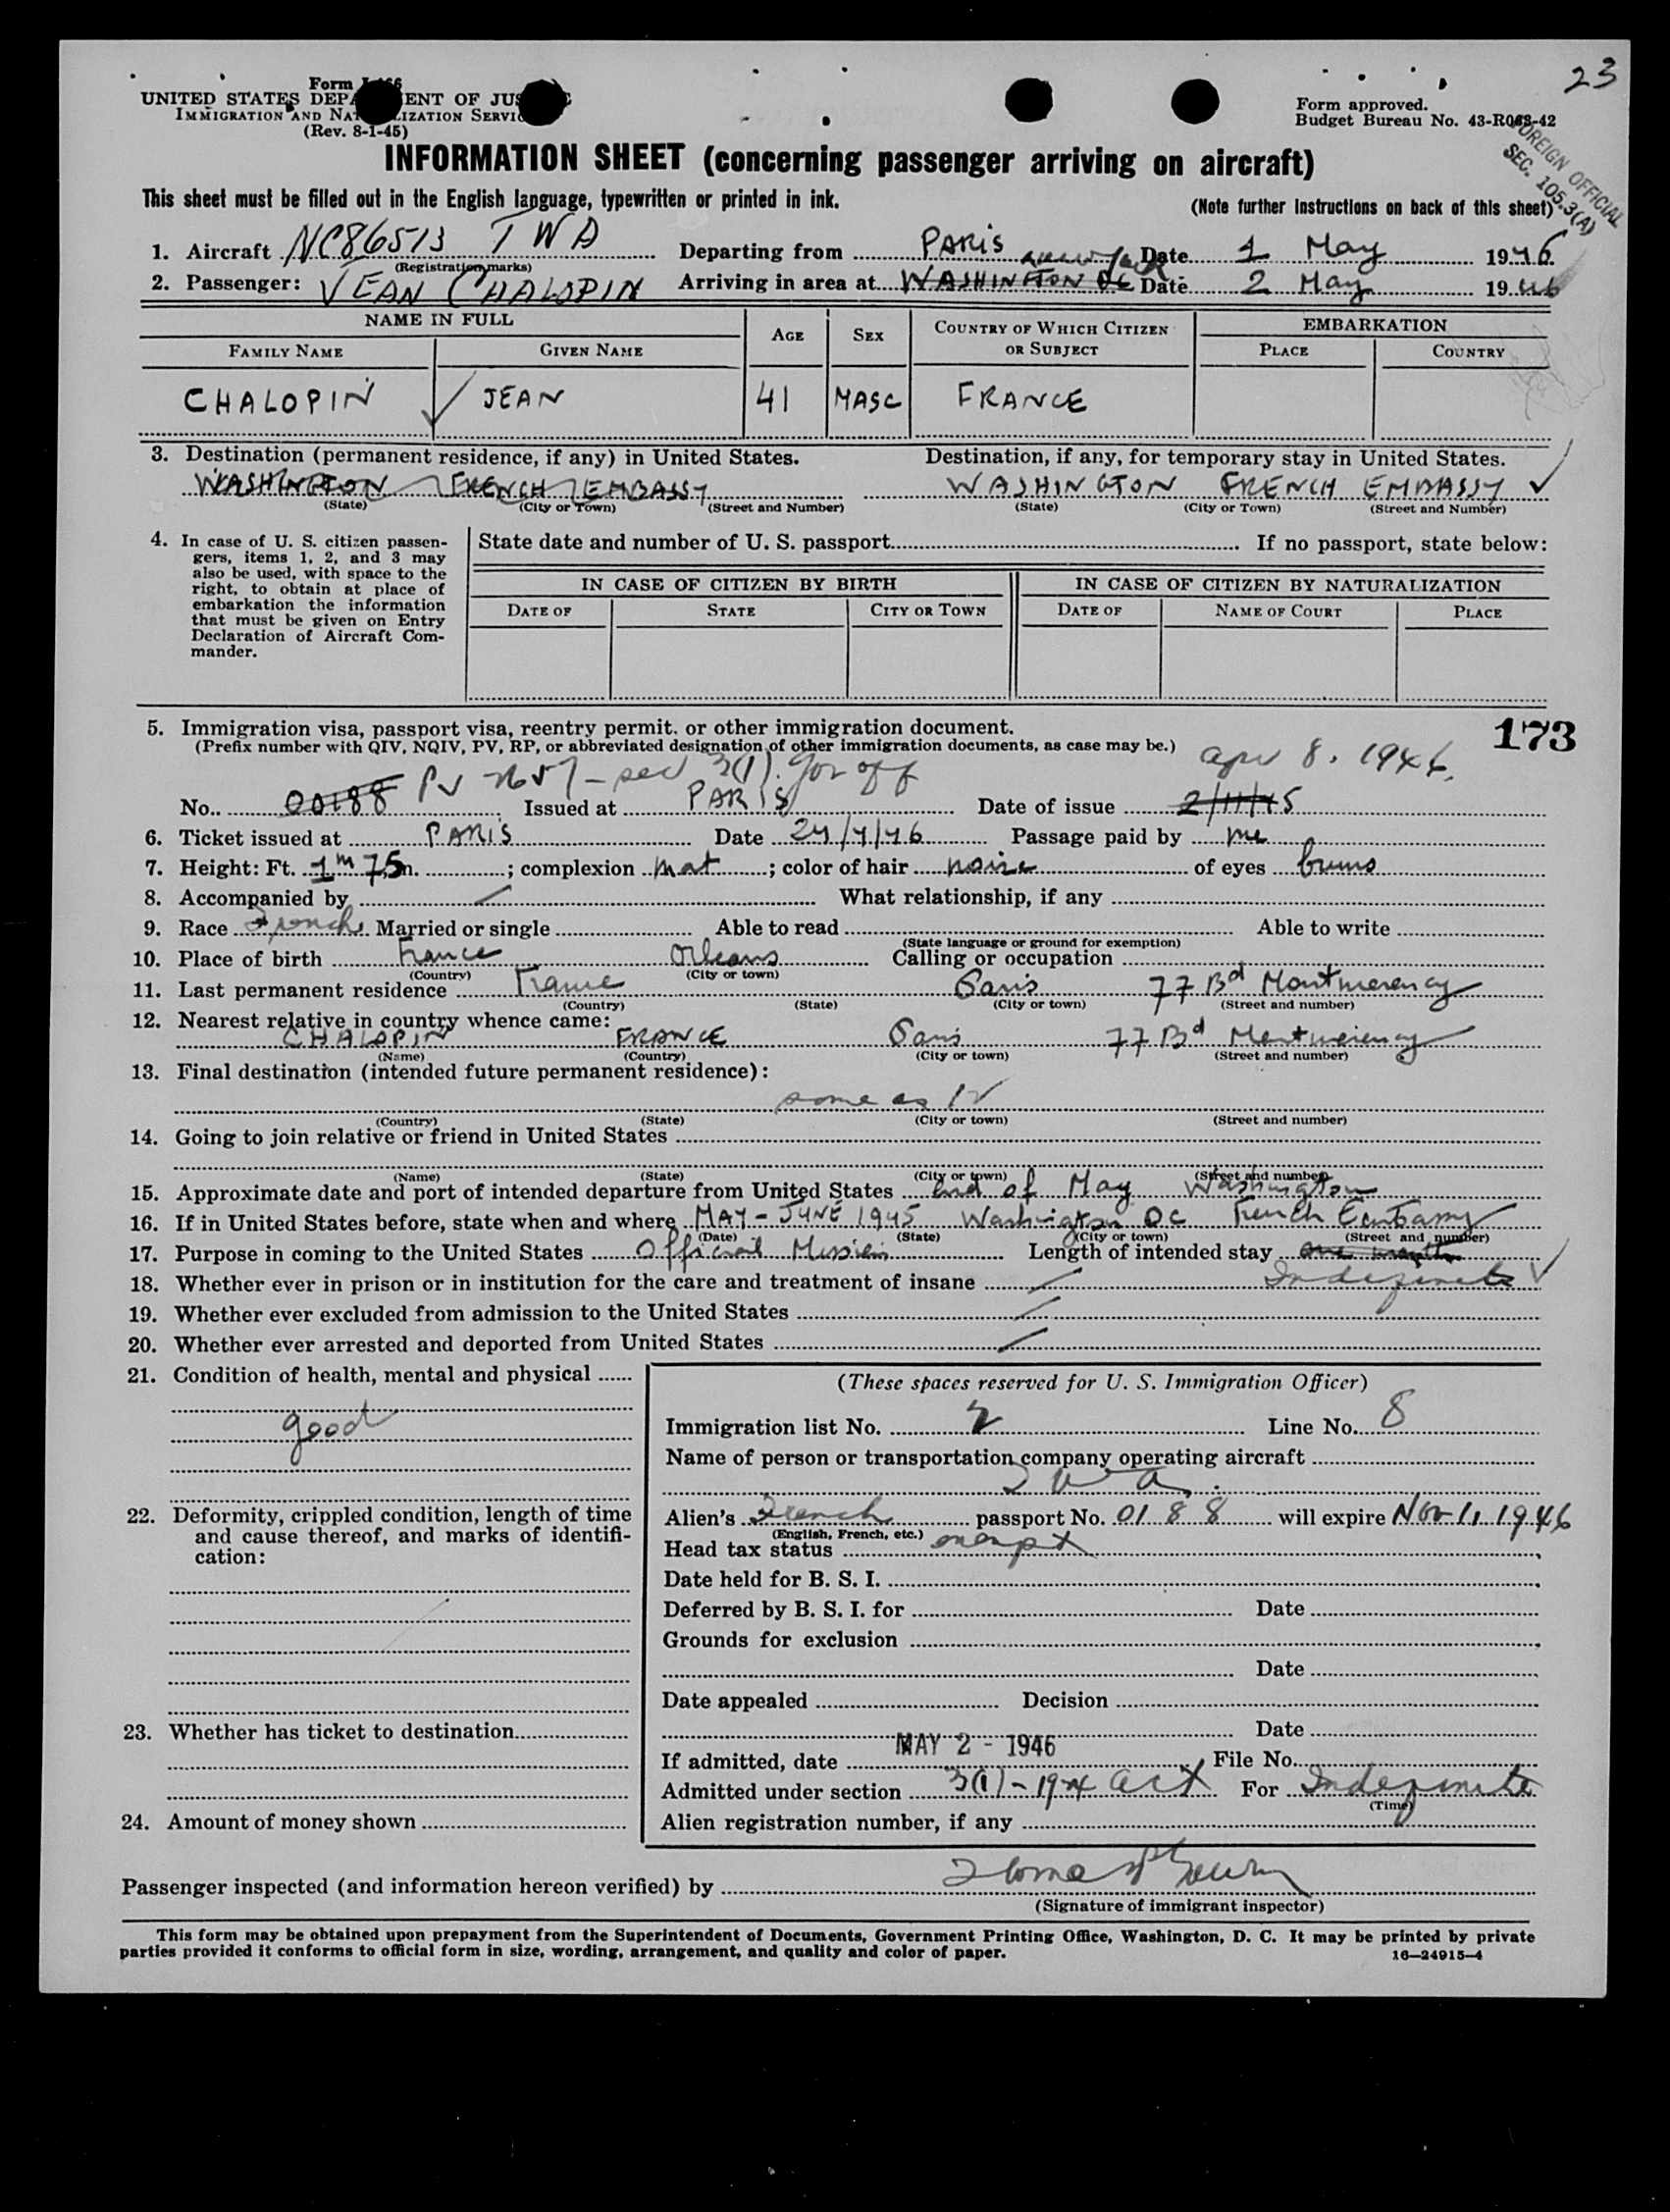 23
Form
UNITED STATES DEPA ENT OF JUS
IMMIGRATION AND NAT IZATION SERVIC
(Rev. 8-1-45)
Form approved.
Budget Bureau No. 43-R063-42
FOREIGN OFFICIAL
SEC. 105.3(A)
INFORMATION SHEET (concerning passenger arriving on aircraft)
This sheet must be filled out in the English language, typewritten or printed in ink.
(Note further instructions on back of this sheet)
1. Aircraft NC86513 TWA Departing from PARIS Date 1 May 1946
(Registration marks) New York
2. Passenger: JEAN CHALOPIN Arriving in area at WASHINGTON DC Date 2 May 1946
NAME IN FULL AGE SEX COUNTRY OF WHICH CITIZEN OR SUBJECT EMBARKATION
FAMILY NAME GIVEN NAME PLACE COUNTRY
CHALOPIN JEAN 41 MASC FRANCE
3. Destination (permanent residence, if any) in United States. Destination, if any, for temporary stay in United States.
WASHINGTON FRENCH EMBASSY WASHINGTON FRENCH EMBASSY
(State) (City or Town) (Street and Number) (State) (City or Town) (Street and Number)
4. In case of U. S. citizen passen-
gers, items 1, 2, and 3 may
also be used, with space to the
right, to obtain at place of
embarkation the information
that must be given on Entry
Declaration of Aircraft Com-
mander.
State date and number of U. S. passport If no passport, state below:
IN CASE OF CITIZEN BY BIRTH IN CASE OF CITIZEN BY NATURALIZATION
DATE OF STATE CITY OR TOWN DATE OF NAME OF COURT PLACE
5. Immigration visa, passport visa, reentry permit. or other immigration document.
173
(Prefix number with QIV, NQIV, PV, RP, or abbreviated designation of other immigration documents, as case may be.)
PV sec 3(1). Gov off Apr 8. 1946.
No. 00188 Issued at PARIS Date of issue 2/11/45
6. Ticket issued at PARIS Date 24/4/46 Passage paid by me
7. Height: Ft. 1m 75 In. ; complexion mat ; color of hair noire of eyes bruns
8. Accompanied by What relationship, if any
9. Race French Married or single Able to read Able to write
(State language or ground for exemption)
10. Place of birth France Orleans Calling or occupation
(Country) (City or town)
11. Last permanent residence France Paris 77 Bd Montmorency
(Country) (State) (City or town) (Street and number)
12. Nearest relative in country whence came:
CHALOPIN FRANCE Paris 77 Bd Montmorency
(Name) (Country) (City or town) (Street and number)
13. Final destination (intended future permanent residence):
same as 12
(Country) (State) (City or town) (Street and number)
14. Going to join relative or friend in United States
(Name) (State) (City or town) (Street and number)
15. Approximate date and port of intended departure from United States End of May Washington
16. If in United States before, state when and where MAY - JUNE 1945 Washington DC French Embassy
(Date) (State) (City or town) (Street and number)
17. Purpose in coming to the United States Official Mission Length of intended stay one month
Indefinite
18. Whether ever in prison or in institution for the care and treatment of insane
19. Whether ever excluded from admission to the United States
20. Whether ever arrested and deported from United States
21. Condition of health, mental and physical
good
22. Deformity, crippled condition, length of time
and cause thereof, and marks of identifi-
cation:
23. Whether has ticket to destination
24. Amount of money shown
(These spaces reserved for U. S. Immigration Officer)
Immigration list No. 2 Line No. 8
Name of person or transportation company operating aircraft
TWA.
Alien's French passport No. 0188 will expire Nov 1, 1946
(English, French, etc.)
Head tax status exempt
Date held for B. S. I.
Deferred by B. S. I. for Date
Grounds for exclusion
Date
Date appealed Decision
Date
If admitted, date MAY 2 - 1946 File No.
Admitted under section 3(1) - 1924 act For Indefinite
(Time)
Alien registration number, if any
Passenger inspected (and information hereon verified) by
(Signature of immigrant inspector)
This form may be obtained upon prepayment from the Superintendent of Documents, Government Printing Office, Washington, D. C. It may be printed by private
parties provided it conforms to official form in size, wording, arrangement, and quality and color of paper. 16—24915-4